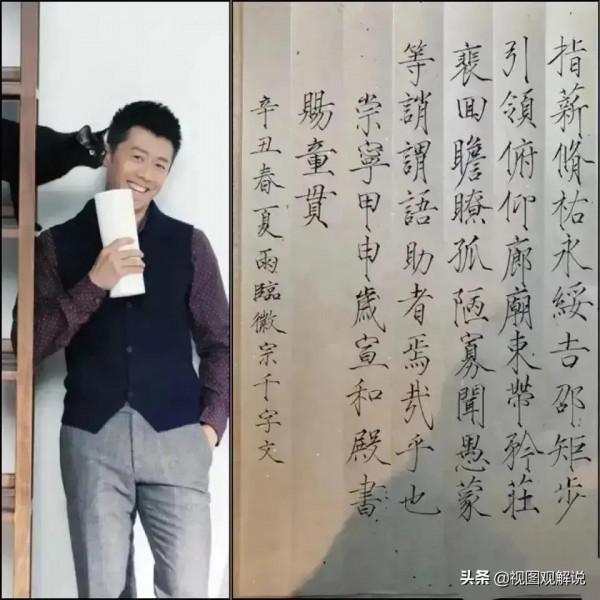 指薪脩祜永綏吉邵矩步
引領俯仰廊廟束帶矜莊
裵回瞻瞭孤陋寡聞愚蒙
等誚謂語助者焉哉乎也
崇寧甲申歲宣和殿書
賜童貫
辛丑春夏雨臨徽宗千字文
头条 @视图观解说